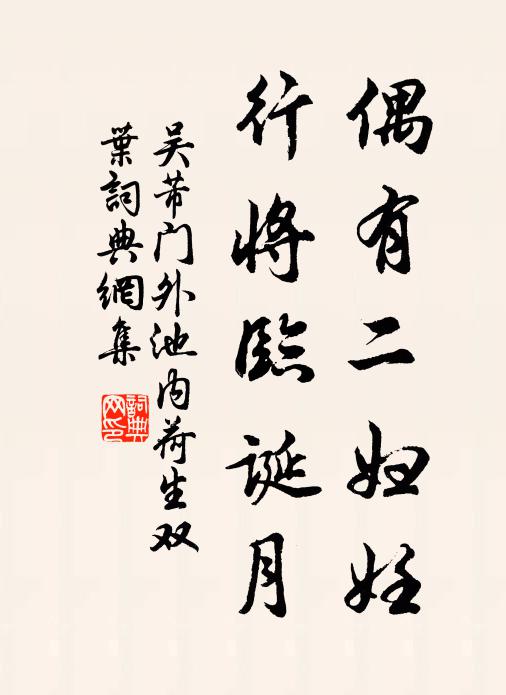 偶有二妇妊
行将临诞月
吴芾门外池内荷生双
叶词典网集
词典网印